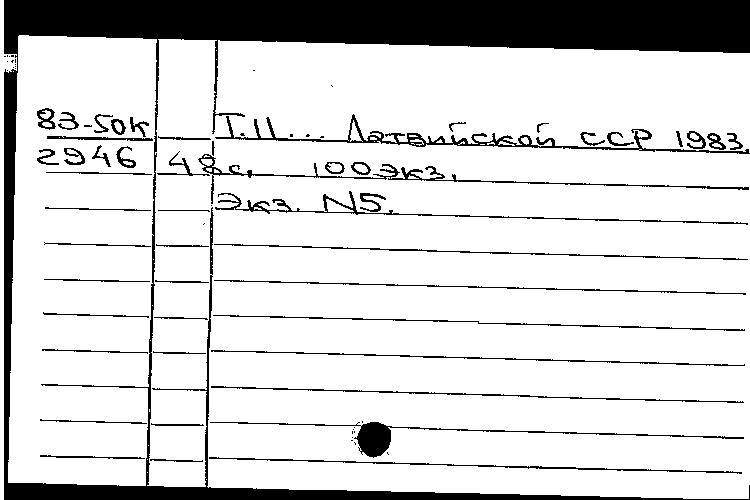 83-50к Т.11... Латвийской ССР 1983.
2946 48с. 100экз.
Экз. N5.